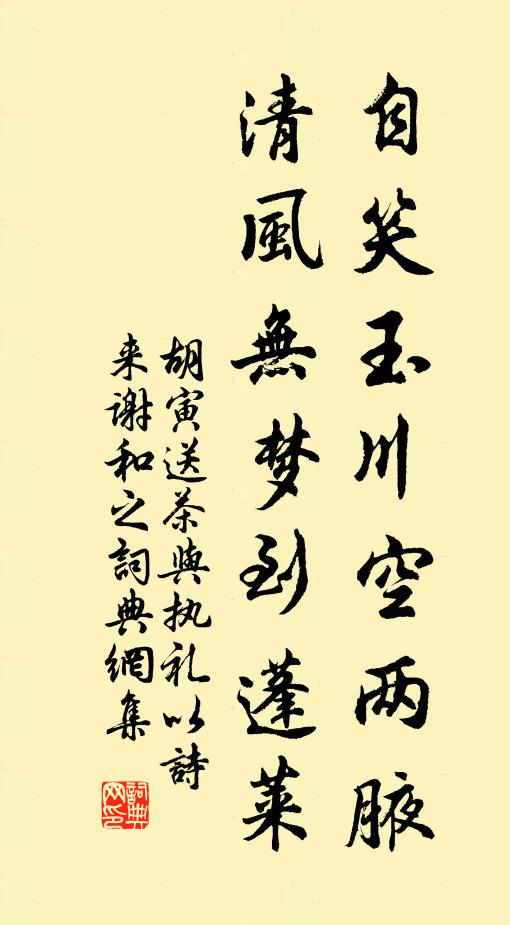 自笑玉川空两腋
清風無梦到蓬莱
胡寅送茶與执礼以詩
来谢和之詞典網集
詞典
网印